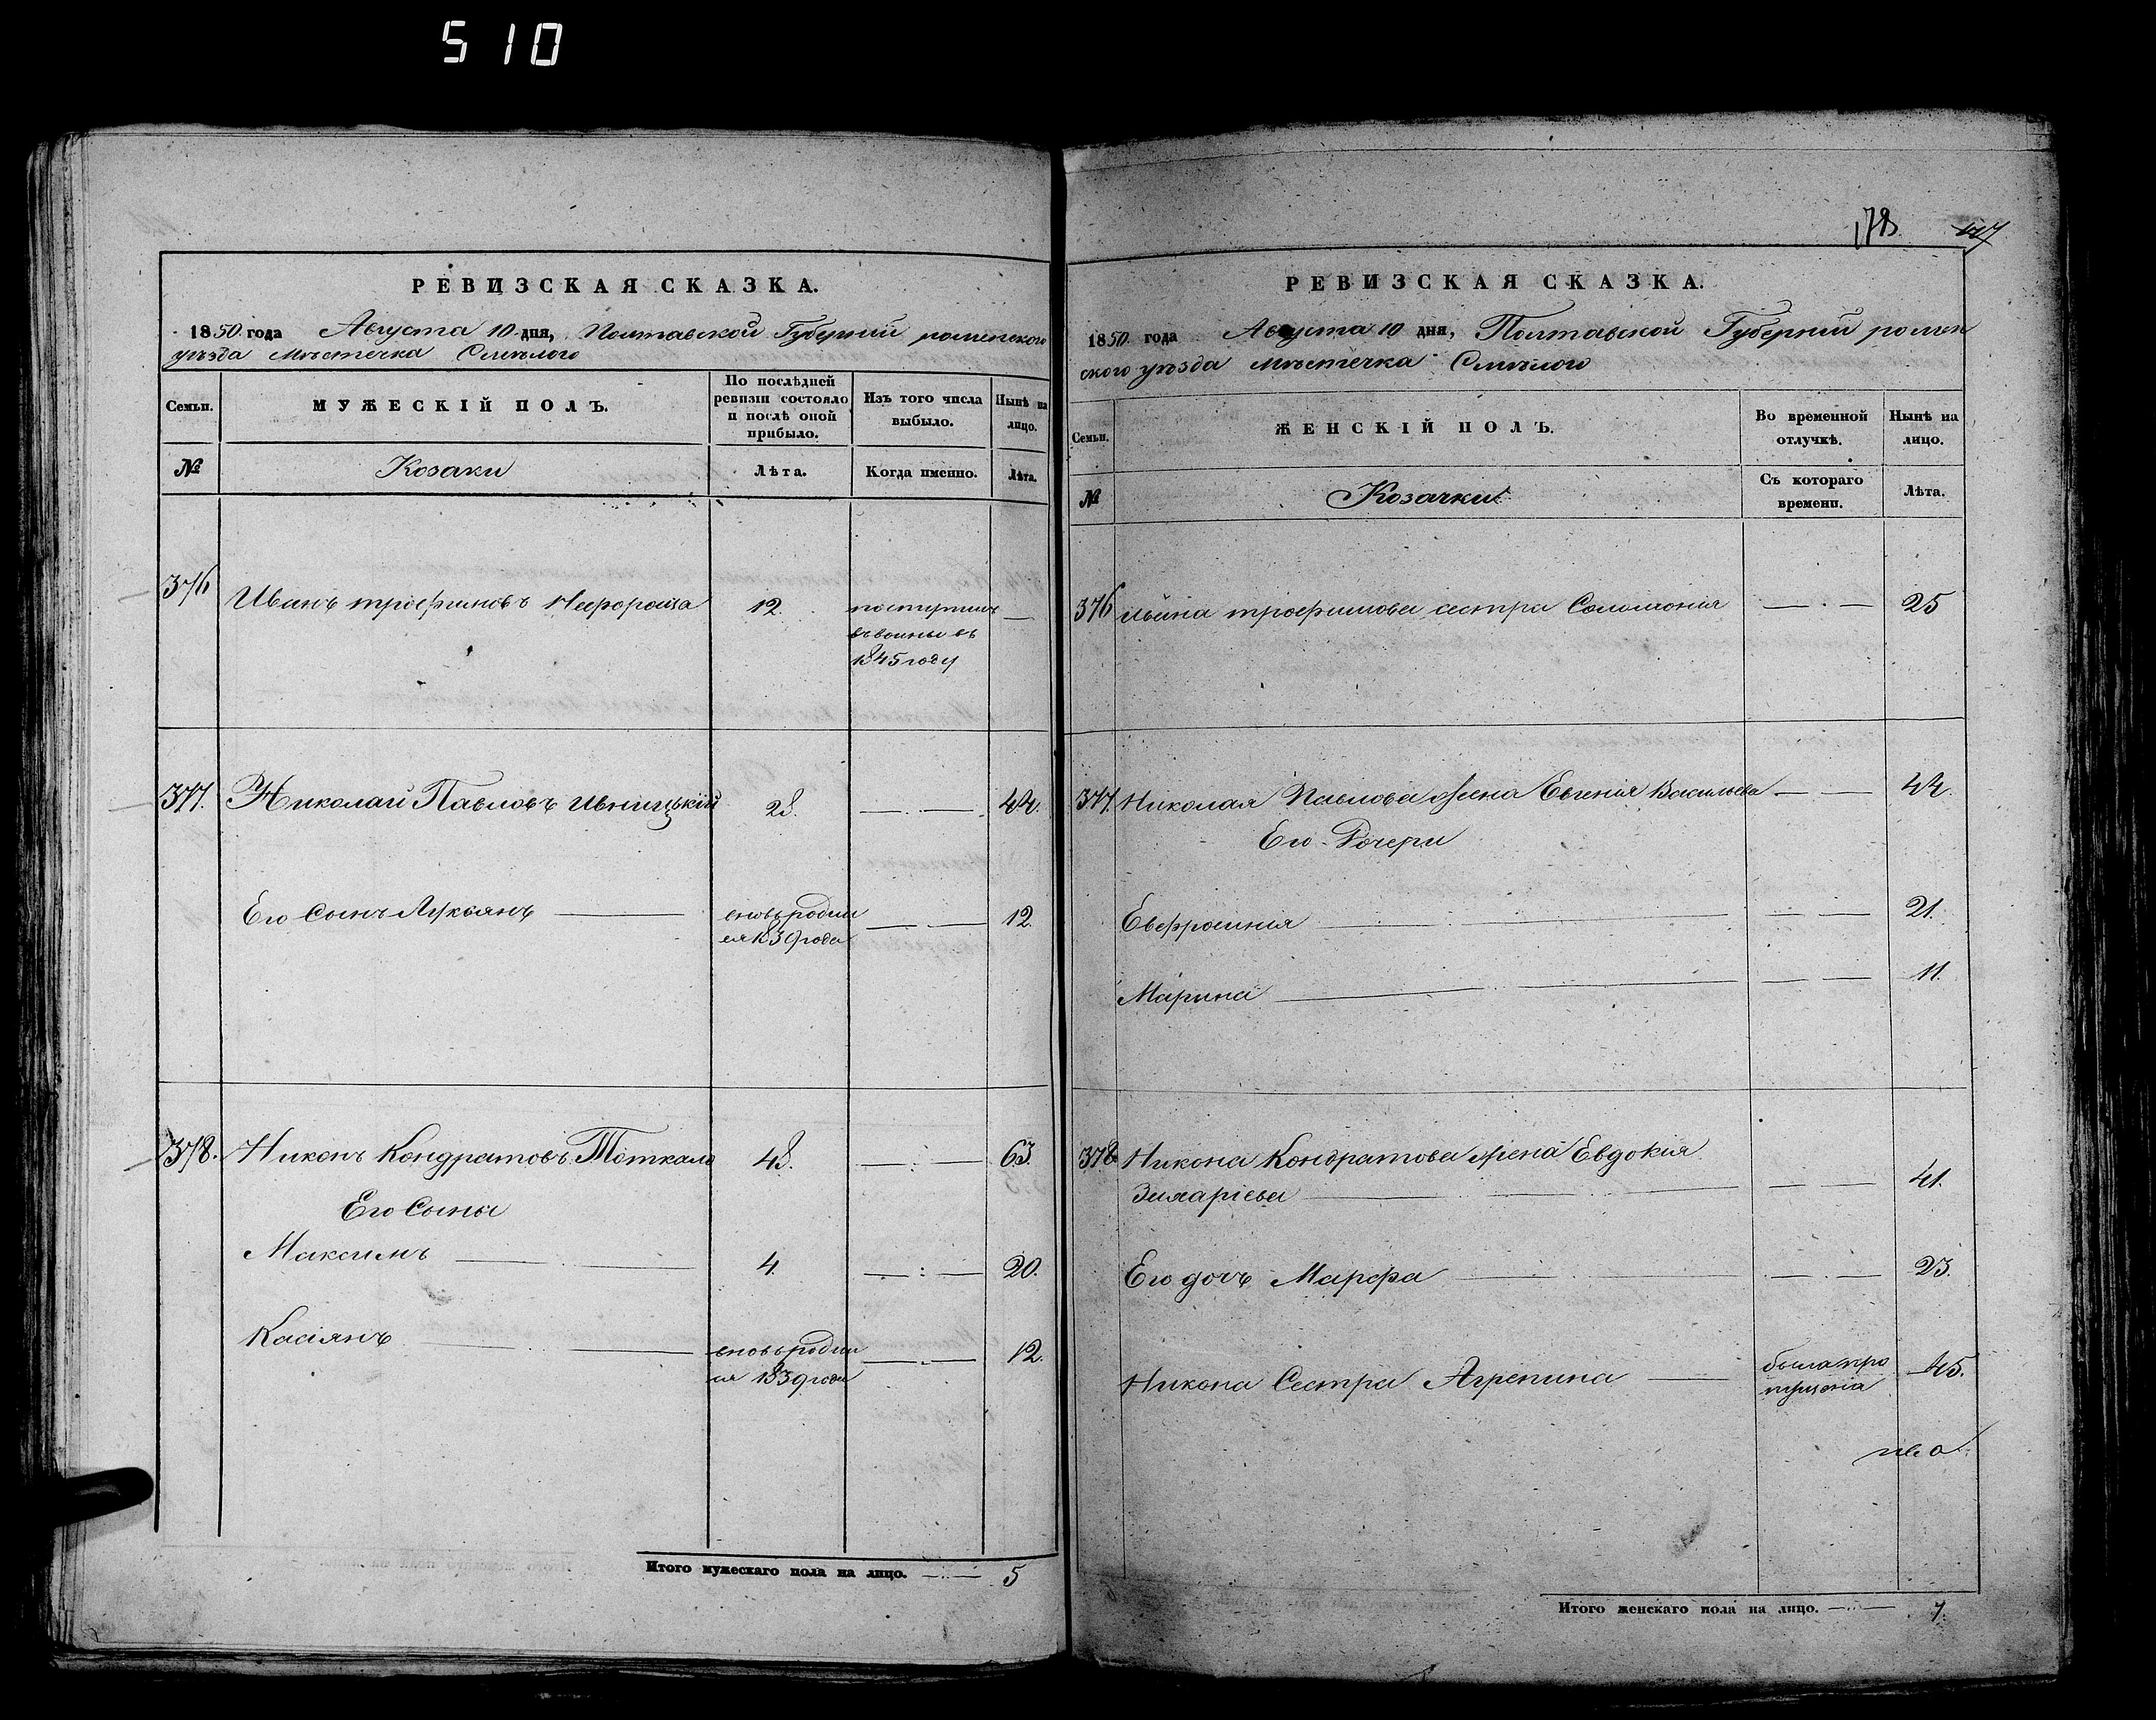 510
РЕВИЗСКАЯ СКАЗКА.
1850 года Августа 10 дня, Полтавской Губерніи роменского
уѣзда мѣстечка Смѣлого
Семьи.
МУЖЕСКІЙ ПОЛЪ.
По послѣдней
ревизіи состояло
и послѣ оной
прибыло.
Изъ того числа
выбыло.
Нынѣ на
лицо.
№
Козаки
Лѣта.
Когда именно.
Лѣта.
376
Иванъ трофимовъ
12.
въ
1845 году
—
377.
Николай Павловъ Ивницькій
28.
44.
Его Сынъ Лукьянъ
вновьродил
ся 1839 года
12.
378.
Никонъ Кондратовъ Тоткало
48.
63.
Его Сыны
Максимъ
4.
20.
Касіянъ
вновьродил
ся 1839 года
12.
Итого мужескаго пола на лицо. 5
178 447
РЕВИЗСКАЯ СКАЗКА.
1850 года Августа 10 дня, Полтавской Губерніи ромен
ского уѣзда мѣстечка Смѣлого
Семьи.
ЖЕНСКІЙ ПОЛЪ.
Во временной
отлучкѣ.
Нынѣ на
лицо.
№
Козачки
Съ котораго
времени.
Лѣта.
376
Ивана трофимова сестра Соломонія
25
377.
Николая Павлова жена Евгенія Васильева
44.
Его Дочери
Евфросинія
21.
Марина
11.
378
Никона Кондратова жена Евдокия
41.
Его дочь Марфа
23.
Никона Сестра Агрепина
была про
пущена
45.
Итого женскаго пола на лицо. 7.